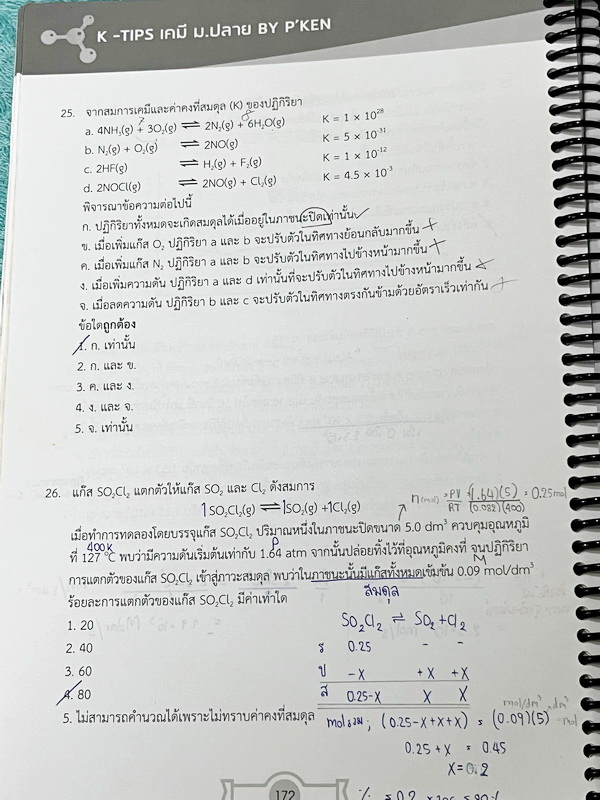 K -TIPS เคมี ม.ปลาย BY P'KEN
25. จากสมการเคมีและค่าคงที่สมดุล (K) ของปฏิกิริยา
a. 4NH₃(g) + 3O₂(g) ⇌ 2N₂(g) + 6H₂O(g) K = 1 × 10²⁸
b. N₂(g) + O₂(g) ⇌ 2NO(g) K = 5 × 10⁻³¹
c. 2HF(g) ⇌ H₂(g) + F₂(g) K = 1 × 10⁻¹²
d. 2NOCl(g) ⇌ 2NO(g) + Cl₂(g) K = 4.5 × 10⁻³
พิจารณาข้อความต่อไปนี้
ก. ปฏิกิริยาทั้งหมดจะเกิดสมดุลได้เมื่ออยู่ในภาชนะปิดเท่านั้น
ข. เมื่อเพิ่มแก๊ส O₂ ปฏิกิริยา a และ b จะปรับตัวในทิศทางย้อนกลับมากขึ้น
ค. เมื่อเพิ่มแก๊ส N₂ ปฏิกิริยา a และ b จะปรับตัวในทิศทางไปข้างหน้ามากขึ้น
ง. เมื่อเพิ่มความดัน ปฏิกิริยา a และ d เท่านั้นที่จะปรับตัวในทิศทางไปข้างหน้ามากขึ้น
จ. เมื่อลดความดัน ปฏิกิริยา b และ c จะปรับตัวในทิศทางตรงกันข้ามด้วยอัตราเร็วเท่ากัน
ข้อใดถูกต้อง
1. ก. เท่านั้น
2. ก. และ ข.
3. ค. และ ง.
4. ง. และ จ.
5. จ. เท่านั้น
26. แก๊ส SO₂Cl₂ แตกตัวให้แก๊ส SO₂ และ Cl₂ ดังสมการ
1SO₂Cl₂(g) ⇌ 1SO₂(g) +1Cl₂(g)
n(mol) = PV/RT = (1.64)(5)/(0.082)(400) = 0.25 mol
เมื่อทำการทดลองโดยบรรจุแก๊ส SO₂Cl₂ ปริมาณหนึ่งในภาชนะปิดขนาด 5.0 dm³ ควบคุมอุณหภูมิ
400 K P
ที่ 127 °C พบว่ามีความดันเริ่มต้นเท่ากับ 1.64 atm จากนั้นปล่อยทิ้งไว้ที่อุณหภูมิคงที่ จนปฏิกิริยา
การแตกตัวของแก๊ส SO₂Cl₂ เข้าสู่ภาวะสมดุล พบว่าในภาชนะนั้นมีแก๊สทั้งหมดเข้มข้น 0.09 mol/dm³
ร้อยละการแตกตัวของแก๊ส SO₂Cl₂ มีค่าเท่าใด
สมดุล
1. 20
2. 40
3. 60
4. 80
5. ไม่สามารถคำนวณได้เพราะไม่ทราบค่าคงที่สมดุล
SO₂Cl₂ ⇌ SO₂ + Cl₂
ร 0.25 - -
ป -x +x +x
ส 0.25-x x x
mol/dm³ dm³
mol รวม; (0.25-x+x+x) = (0.09)(5) mol
0.25 + x = 0.45
x = 0.2
172